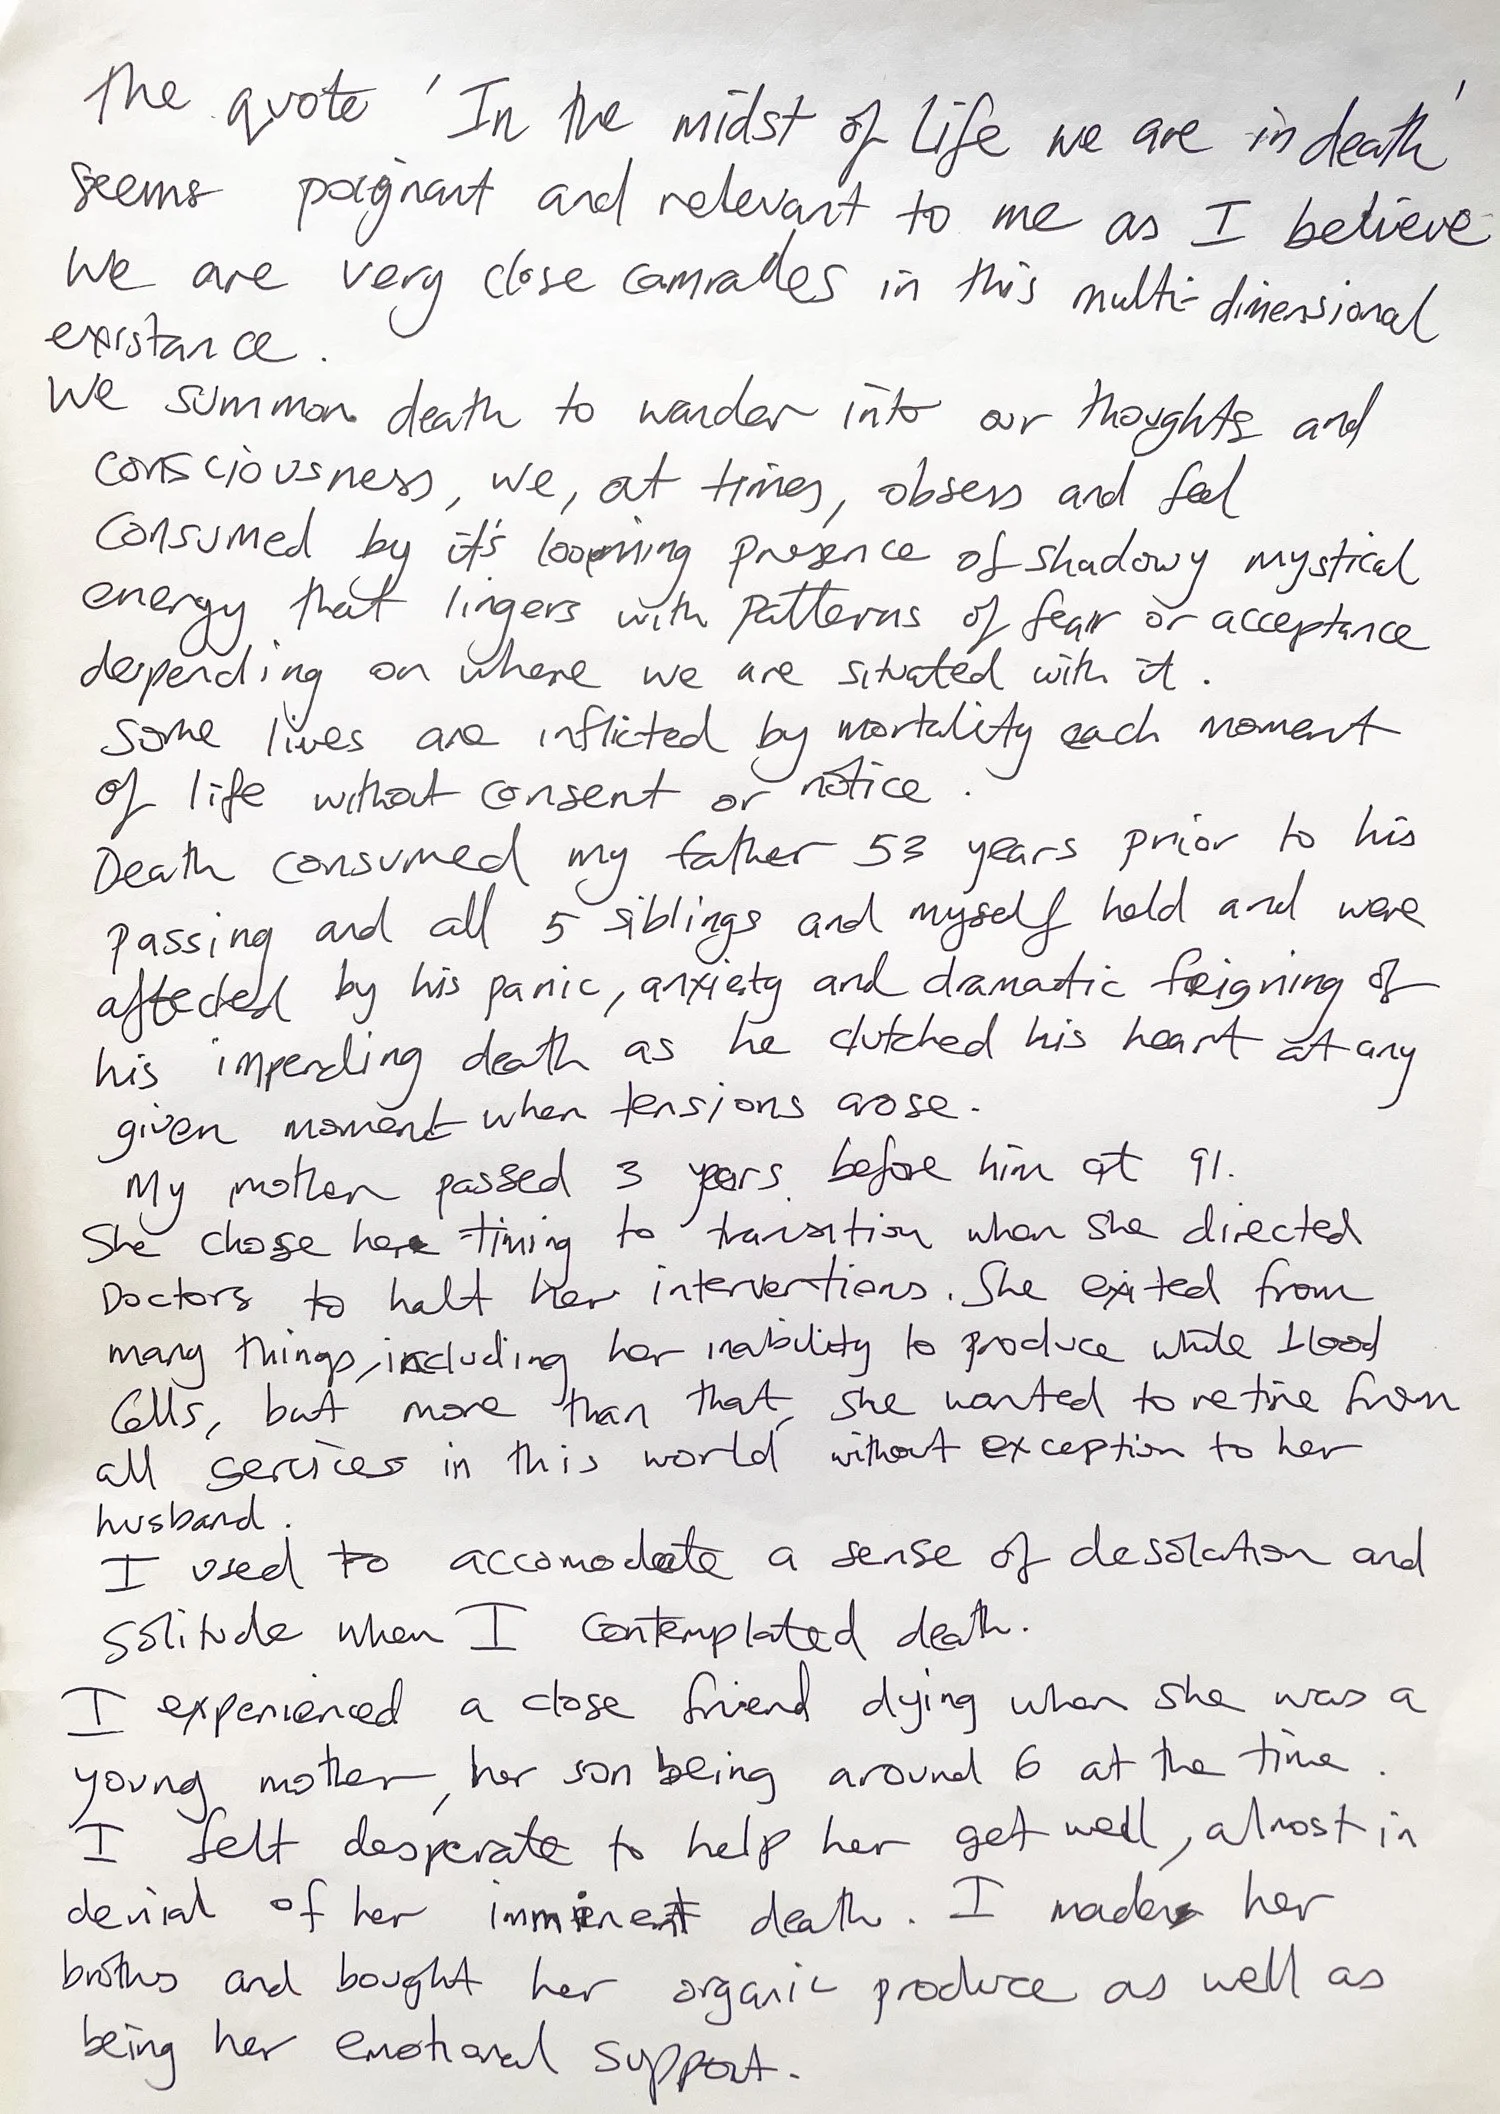 The quote 'In the midst of life we are in death'
seems poignant and relevant to me as I believe
we are very close comrades in this multi-dimensional
existance.
We summon death to wander into our thoughts and
consciousness, we, at times, obsess and feel
consumed by it's looming presence of shadowy mystical
energy that lingers with patterns of fear or acceptance
depending on where we are situated with it.
Some lives are inflicted by mortality each moment
of life without consent or notice.
Death consumed my father 53 years prior to his
passing and all 5 siblings and myself held and were
affected by his panic, anxiety and dramatic feigning of
his impending death as he clutched his heart at any
given moment when tensions arose.
My mother passed 3 years before him at 91.
She chose her timing to transition when she directed
Doctors to halt her interventions. She exited from
many things, including her inability to produce white blood
Cells, but more than that, she wanted to retire from
all services in this world without exception to her
husband.
I used to accomodate a sense of desolation and
solitude when I contemplated death.
I experienced a close friend dying when she was a
young mother, her son being around 6 at the time.
I felt desperate to help her get well, almost in
denial of her imminent death. I made her
broths and bought her organic produce as well as
being her emotional support.